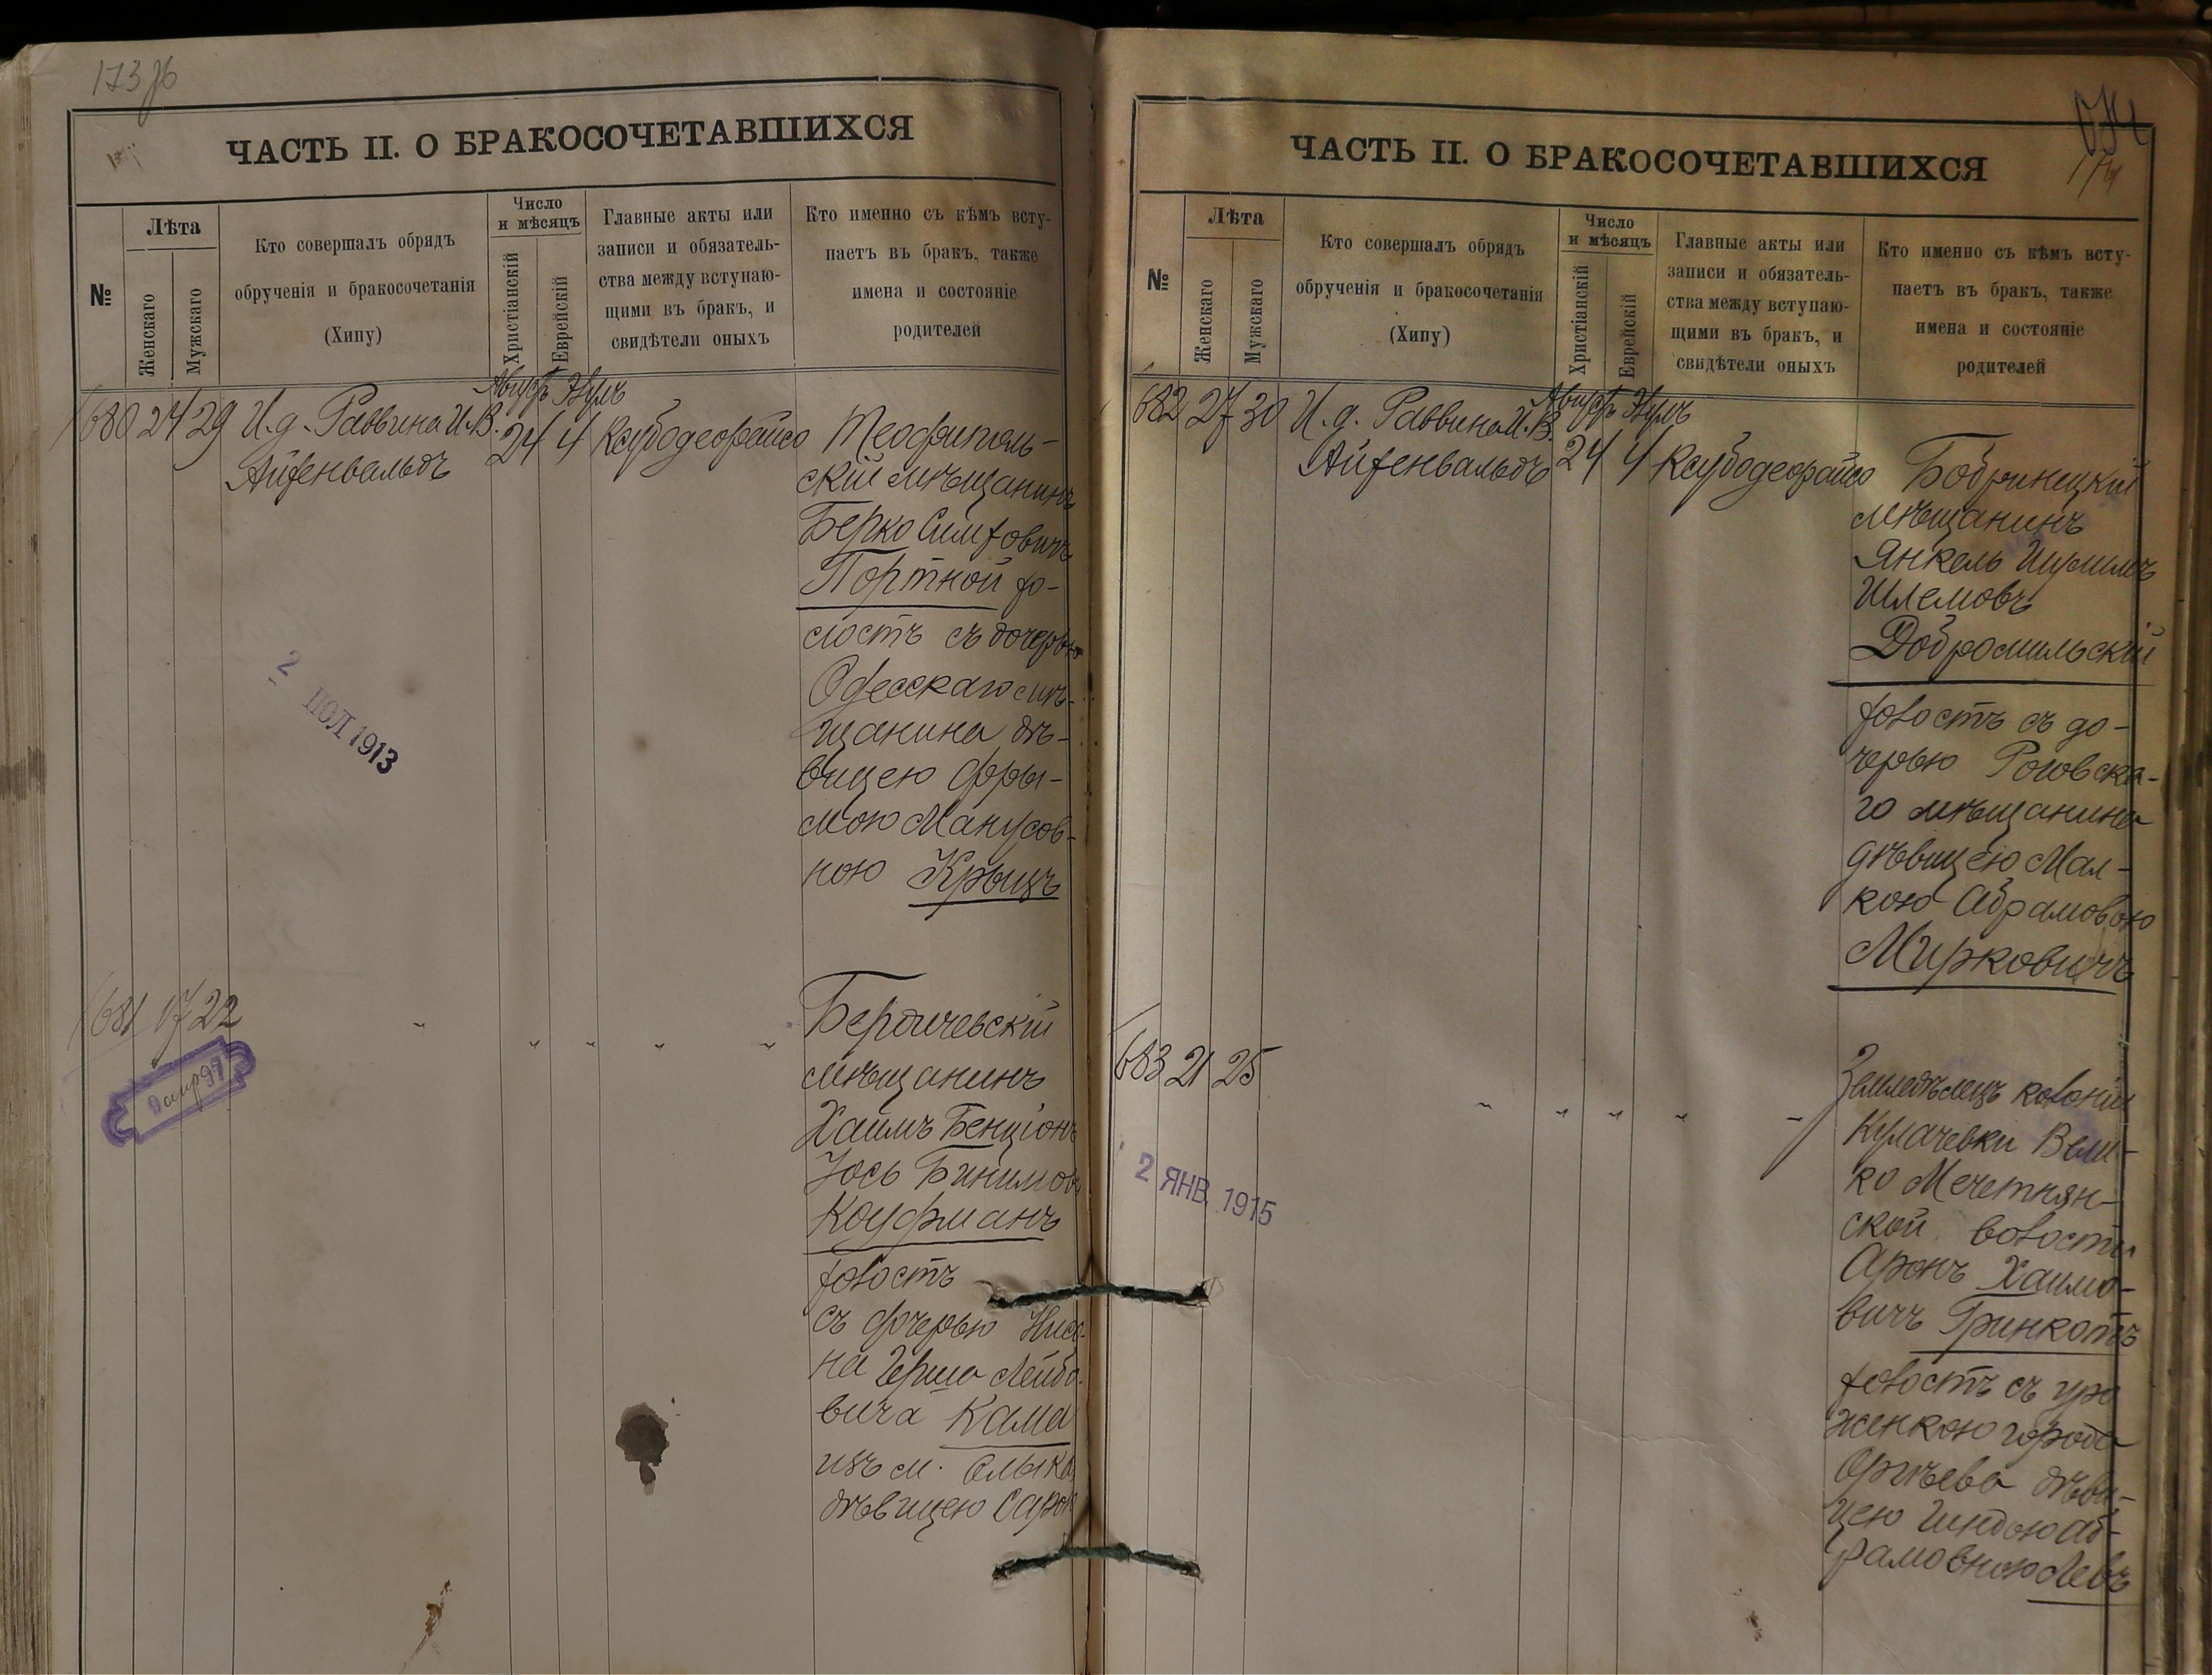 173
ЧАСТЬ II. О БРАКОСОЧЕТАВШИХСЯ
№
Лѣта
Женскаго
Мужскаго
Кто совершалъ обрядъ
обрученія и бракосочетанія
(Хипу)
Число
и мѣсяцъ
Христіанскій
Еврейскій
Главные акты или
записи и обязатель-
ства между вступаю-
щими въ бракъ, и
свидѣтели оныхъ
Кто именно съ кѣмъ всту-
паетъ въ бракъ, также
имена и состояніе
родителей
Август Элулъ
680 24 29 И.д. Раввина И.В. 24 4 Ксубодеорайсо
Айзенвальдъ
Теофиполь-
скій мѣщанинъ
Берко Симховичъ
Портной хо-
лостъ съ дочерью
Одесскаго мѣ-
щанина дѣ-
вицею Фры-
мою Манусов-
ною Крыцъ
2 ІЮЛ 1913
681 17 22 " " " " "
Бердичевскій
мѣщанинъ
Хаимъ Бенціонъ
Іось Бинимовъ
Кауфманъ
холостъ
съ дочерью Нисе-
на Герша Лейбо-
вича Кама
изъ м. Олыка
дѣвицею Сарою
ЧАСТЬ II. О БРАКОСОЧЕТАВШИХСЯ
174
№
Лѣта
Женскаго
Мужскаго
Кто совершалъ обрядъ
обрученія и бракосочетанія
(Хипу)
Число
и мѣсяцъ
Христіанскій
Еврейскій
Главные акты или
записи и обязатель-
ства между вступаю-
щими въ бракъ, и
свидѣтели оныхъ
Кто именно съ кѣмъ всту-
паетъ въ бракъ, также
имена и состояніе
родителей
Август Элулъ
682 27 30 И.д. Раввина И.В. 24 4 Ксубодеорайсо
Айзенвальдъ
Бобринецкій
мѣщанинъ
Янкель
Шлемовъ
Добромильскій
холостъ съ до-
черью Роговска-
го мѣщанина
дѣвицею Мал-
кою Абрамовою
Мирковичъ
683 21 25 " " " " "
2 ЯНВ. 1915
Земледѣлецъ колоніи
Кулачевки Вели-
ко Мечетнян-
ской волости
Аронъ Хаимо-
вичъ Гринкотъ
холостъ съ уро
женкою города
Оргѣева дѣви-
цею Гиндою Аб-
рамовною Левъ